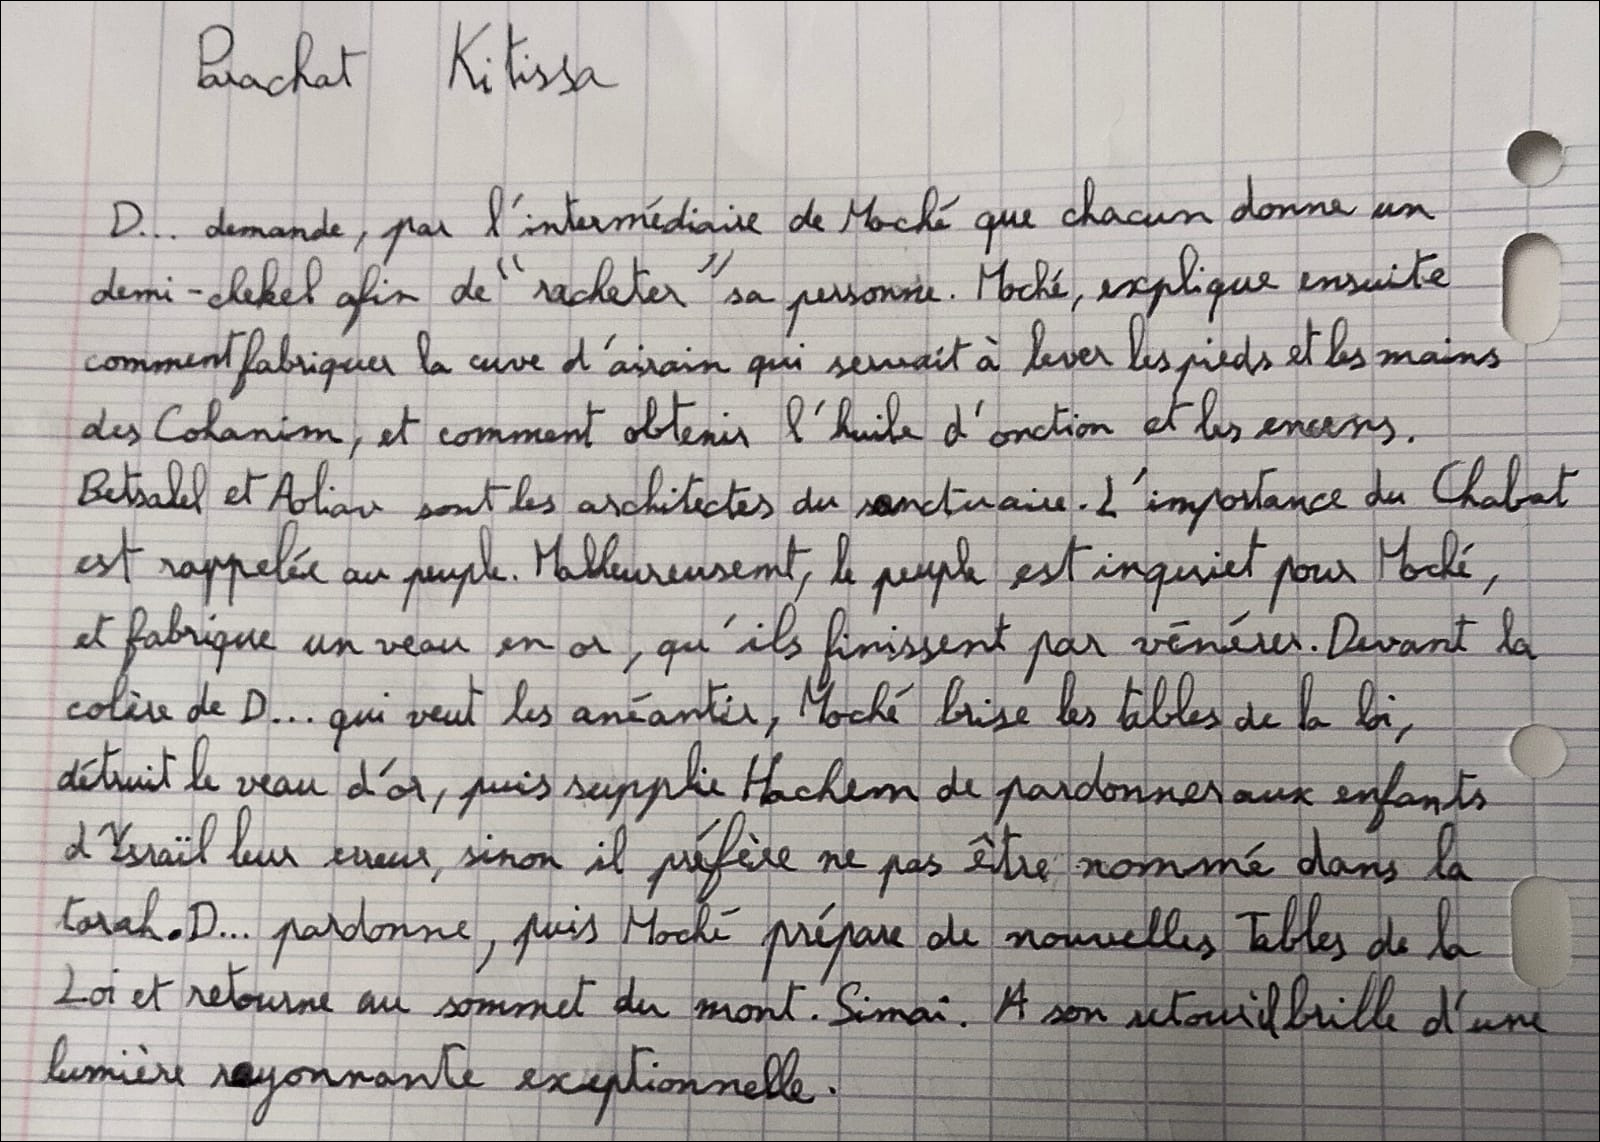 Parachat Kitissa
D... demande, par l'intermédiaire de Moché que chacun donne un
demi-chekel afin de "racheter" sa personne. Moché, explique ensuite
comment fabriquer la cuve d'airain qui servait à laver les pieds et les mains
des Cohanim, et comment obtenir l'huile d'onction et les encens.
Betsalel et Aoliav sont les architectes du sanctuaire. L'importance du Chabat
est rappelée au peuple. Malheureusemt, le peuple est inquiet pour Moché,
et fabrique un veau en or, qu'ils finissent par vénérer. Devant la
colère de D... qui veut les anéantir, Moché brise les tables de la loi,
détruit le veau d'or, puis supplie Hachem de pardonner aux enfants
d'Ysraïl leur erreur, sinon il préfère ne pas être nommé dans la
torah. D... pardonne, puis Moché prépare de nouvelles Tables de la
Loi et retourne au sommet du mont. Sinai. A son retour il brille d'une
lumière rayonnante exceptionnelle.